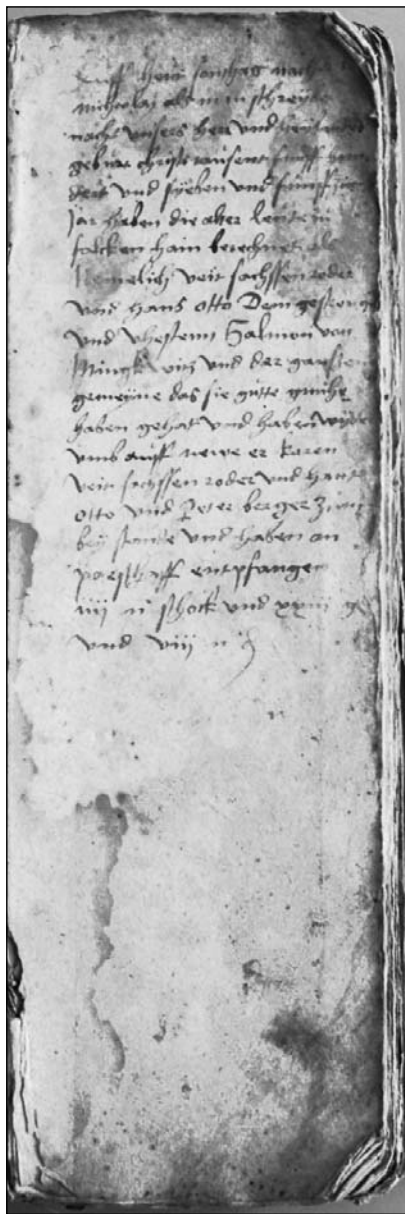 Auff heut sontagk nach
nicholaj als man schreybet
nach unsers hern und heylandes
geburt christi tausent funff hun
dert und syeben und funfftzig
Jar haben die alter leute in
falcken hain berechnet als
Nemelich veit sachssenroder
und Hans otto Dem gestrengen
und vhestenn Salmon von
und der gantzen
gemeyne das sie gutte gnuhe
haben gehat und haben wyder
umb auff newe er koren
veit sachssenroder und hans
otto und Peter berger zum
bey stande und haben an
entpfangen
iiij n schock und xxiii g
und viij n d